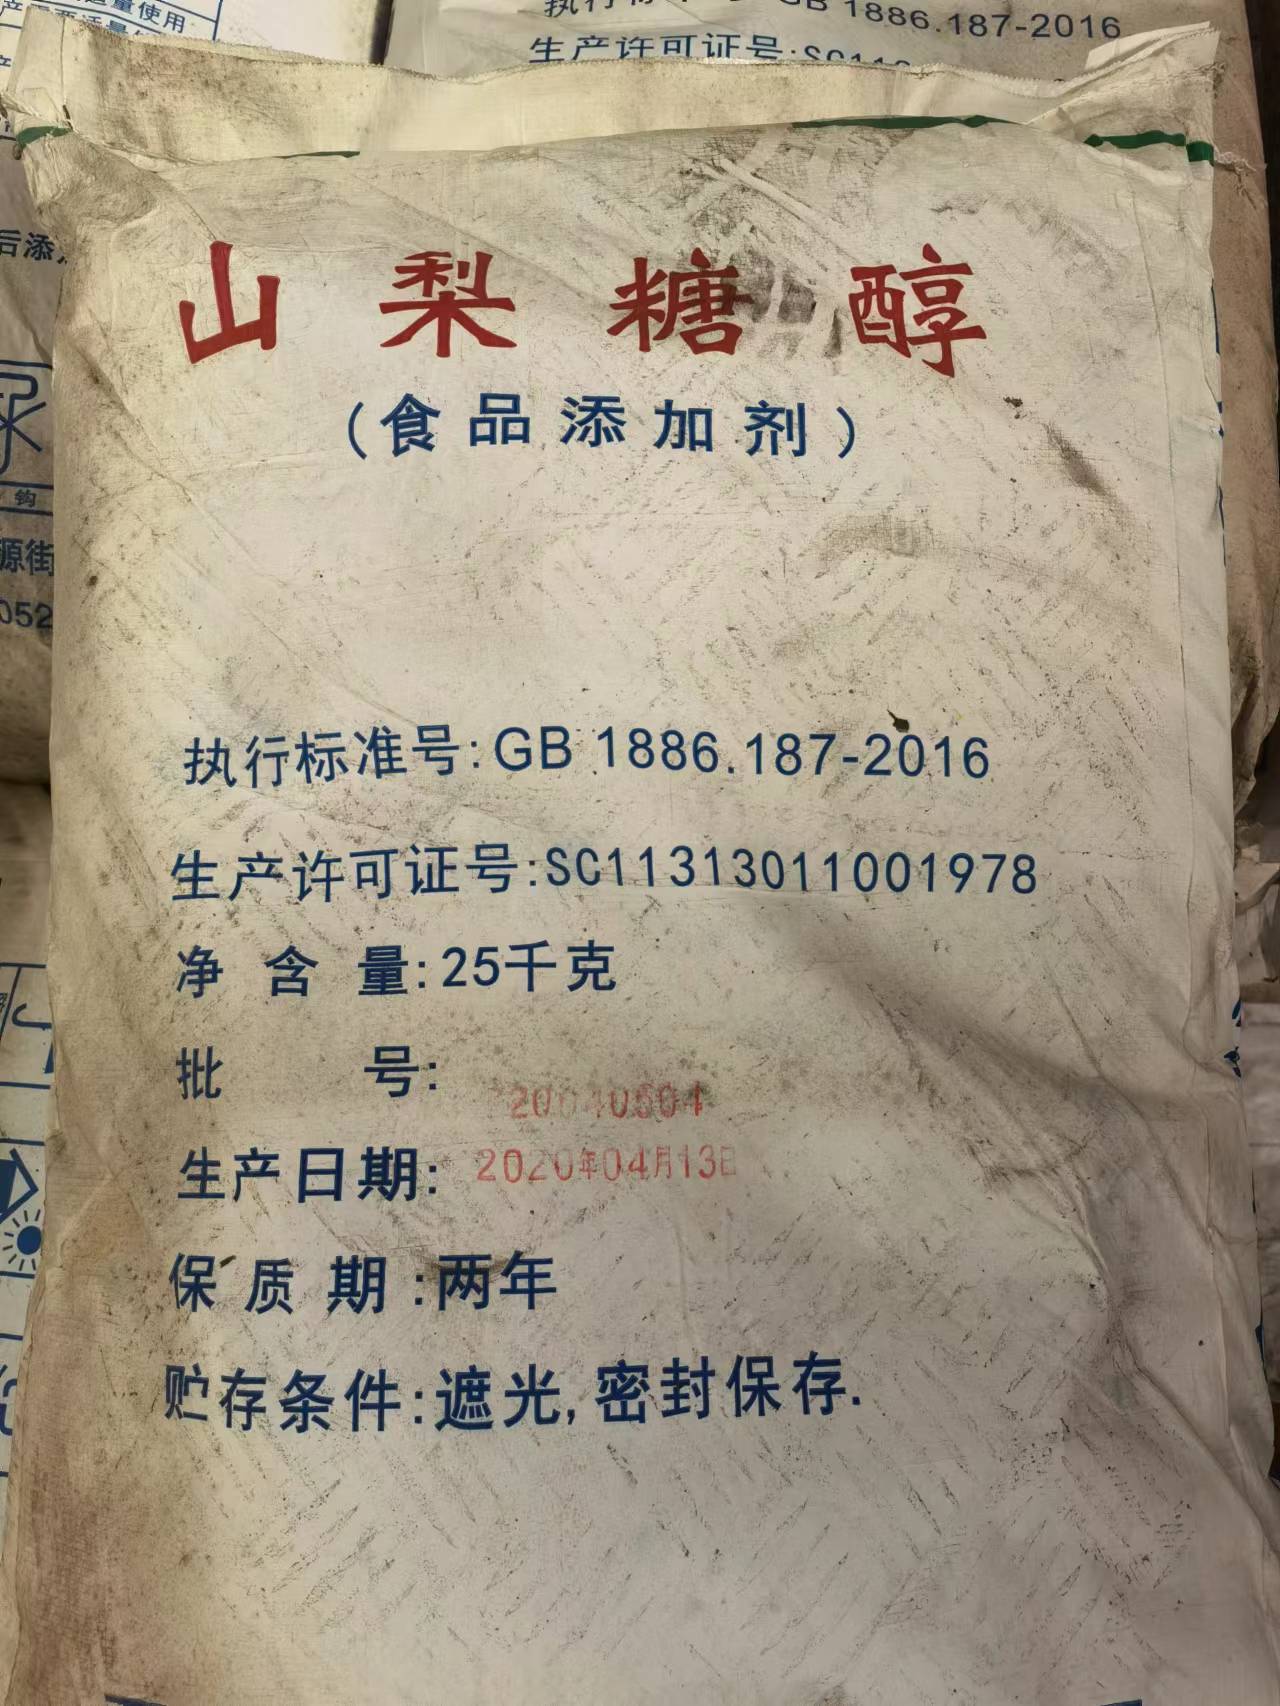 量使用
执行标准号:GB 1886.187-2016
生产许可证号:SC113
后添加
钩
源街
052
山梨糖醇
(食品添加剂)
执行标准号:GB 1886.187-2016
生产许可证号:SC11313011001978
净含量:25千克
批号:
20040504
生产日期:2020年04月13日
保质期:两年
贮存条件:遮光,密封保存.